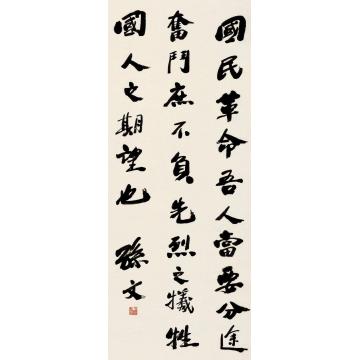 國民革命吾人當要分途
奮鬥庶不負先烈之犧牲
國人之期望也 孫文